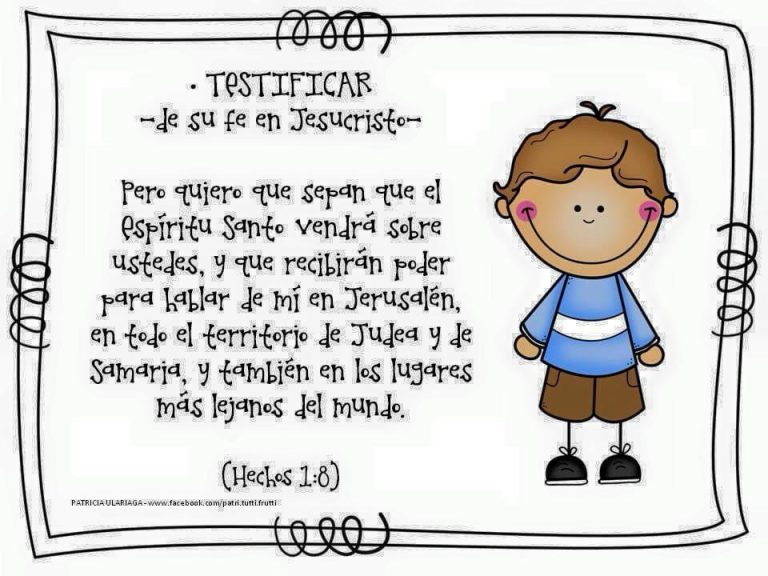 • TESTIFICAR
-de su fe en Jesucristo-
Pero quiero que sepan que el
Espíritu Santo vendrá sobre
ustedes, y que recibirán poder
para hablar de mí en Jerusalén,
en todo el territorio de Judea y de
Samaria, y también en los lugares
más lejanos del mundo.
(Hechos 1:8)
PATRICIA ULARIAGA - www.facebook.com/patri.tutti.frutti